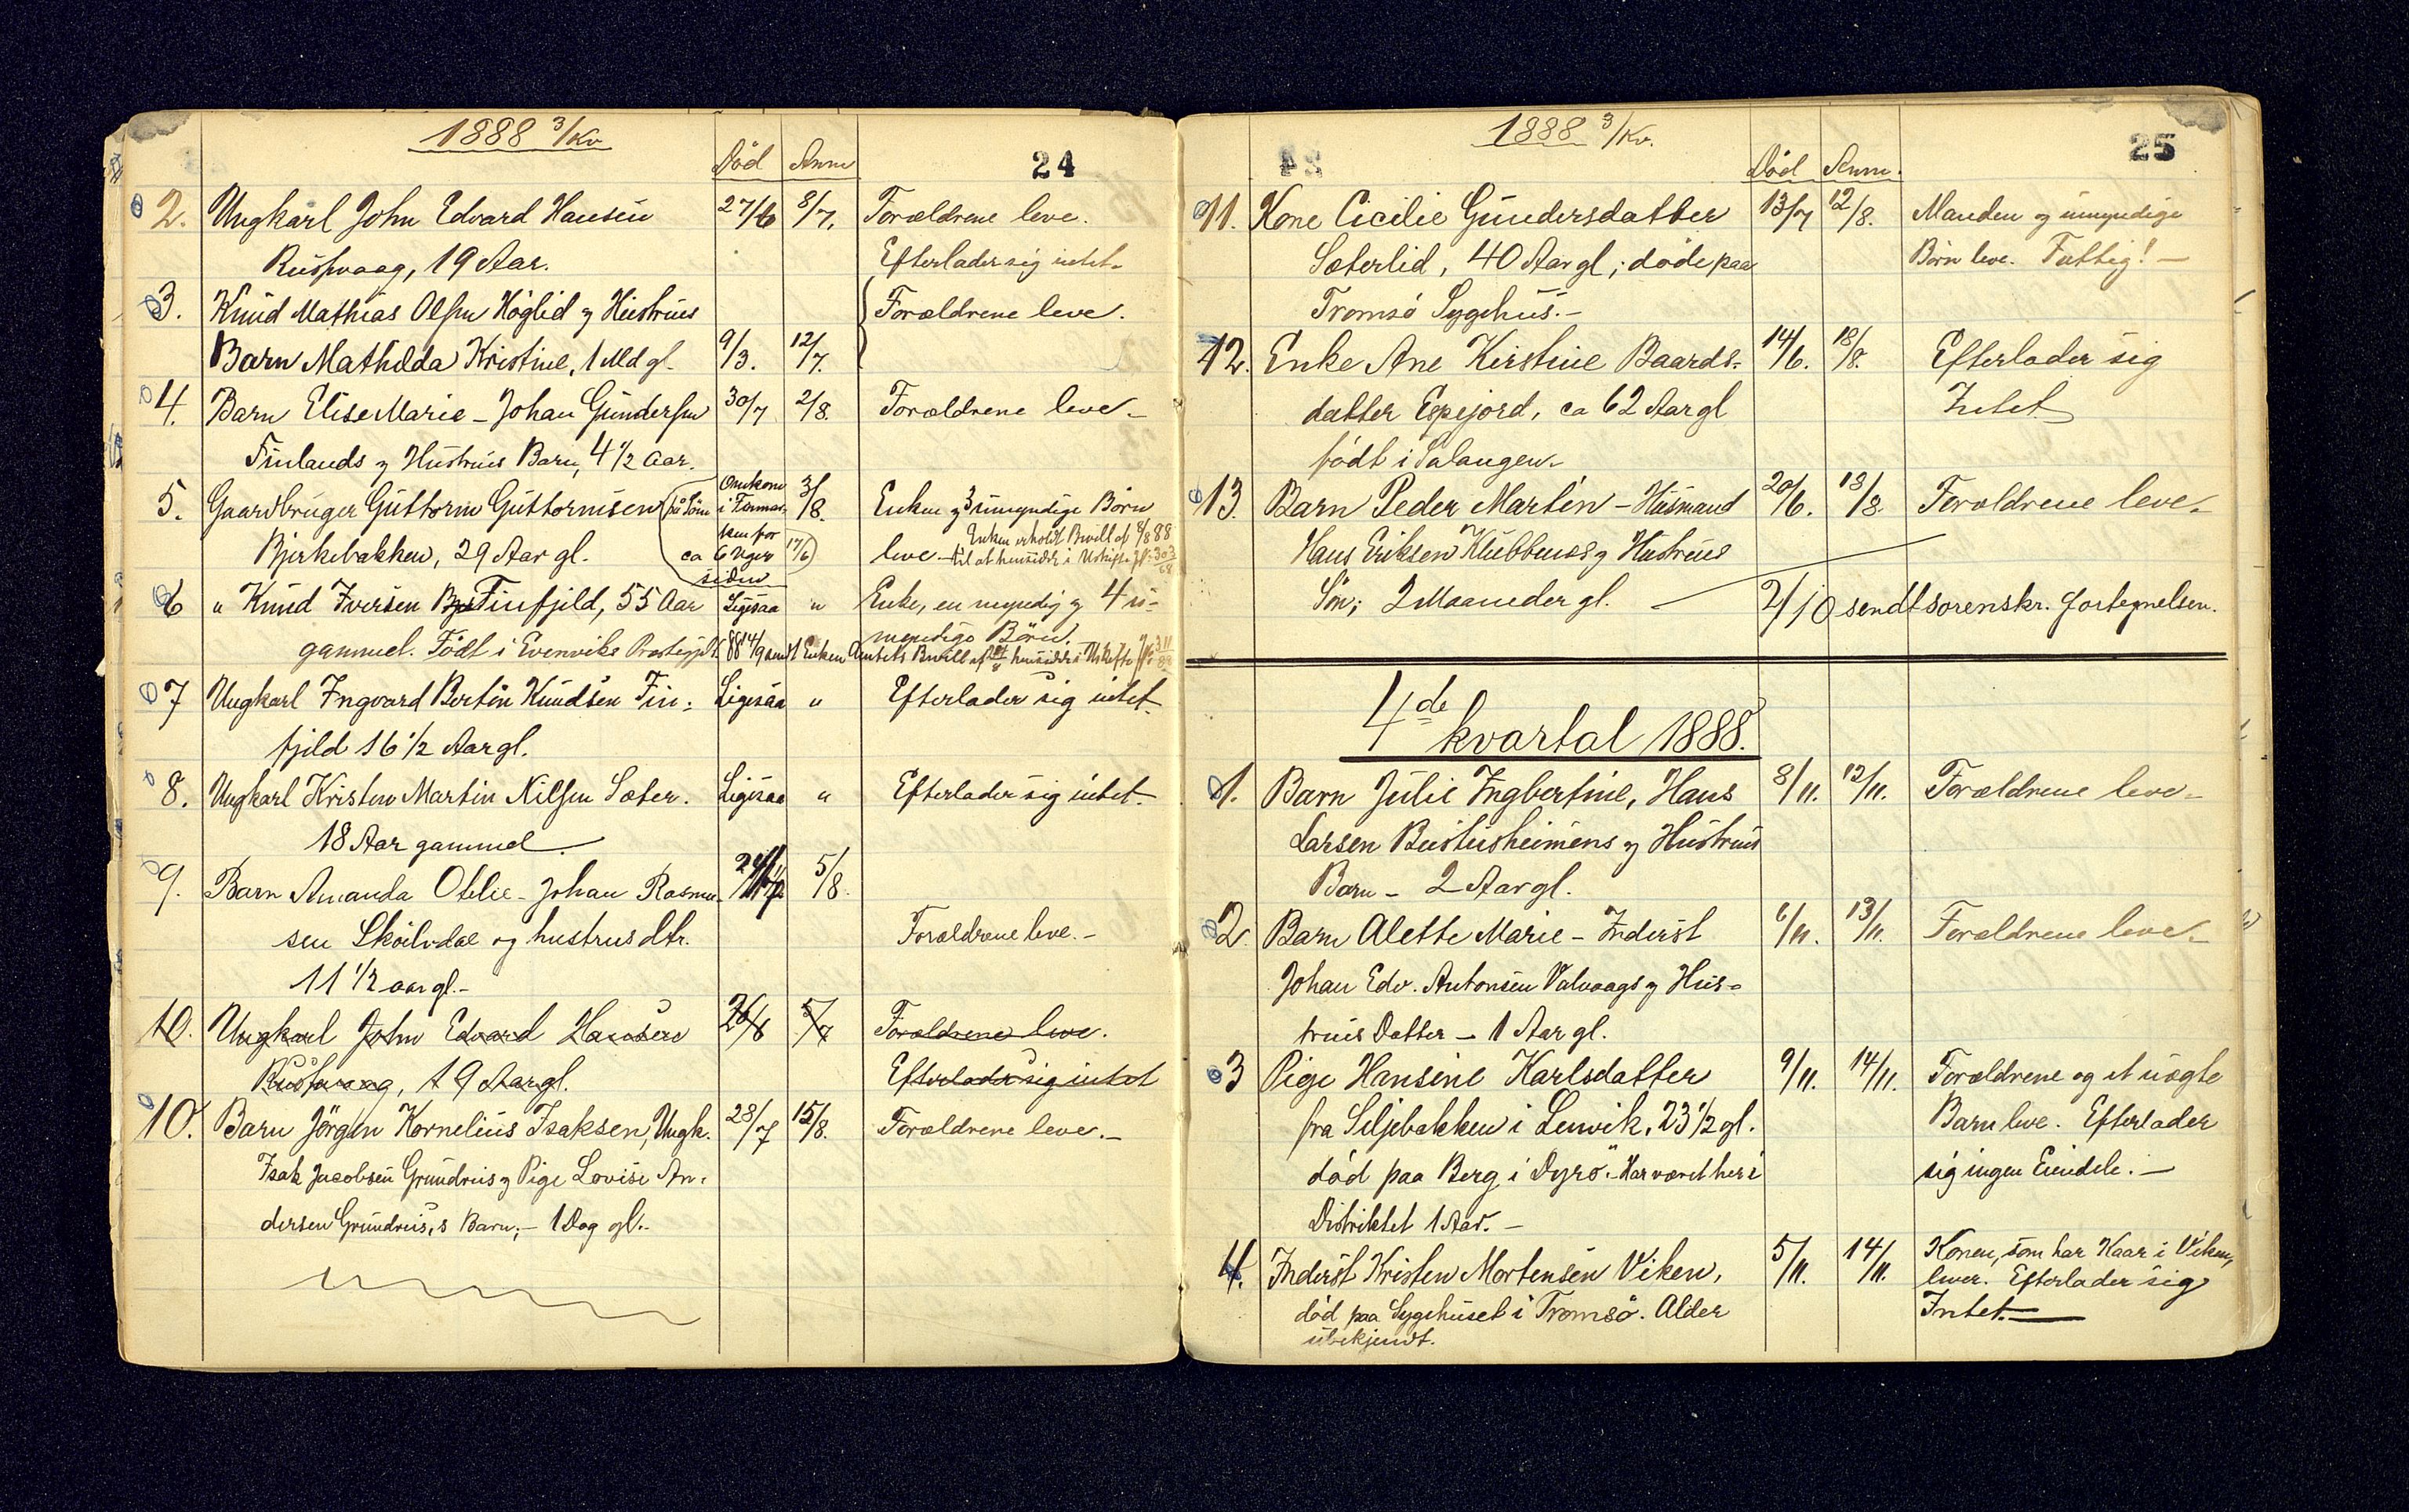 1888 3/Kv
24
Død Anm
2. Ungkarl John Edvard Hansen 27/6 8/7. Forældrene leve.
Rusfvaag, 19 Aar. Efterlader sig intet.
3. Knud Mathias Olsen Høglid og Hustrues Forældrene leve.
Barn Mathilda Kristine, 1 Md gl. 9/3. 12/7.
4. Barn Elise Marie - Johan Gundersen 30/7 2/8. Forældrene leve -
Finlands og Hustrues Barn, 4 1/2 Aar.
5. Gaardbruger Guttorm Guttormsen (på Søen Omkom i Finmar- 3/8. Enken og 3 umyndige Børn
Bjerkebakken, 29 Aar gl. ken for ca 6 Uger siden 17/6) leve. - Enken erholdt Bevill af 8/8 88
til at hensidde i Uskifte
6 " Knud Iversen Finfjeld, 55 Aar Ligesaa " Enke, en myndig og 4 u-
gammel. Født i Evenviks Præstegjeld. myndige Børn.
88 14/9 sendt Enken Amtets Bevill af hensidde i Uskifte
7 Ungkarl Ingvard Bertin Knudsen Fin- Ligesaa " Efterlader sig intet.
fjeld 16 1/2 Aar gl.
8. Ungkarl Kristen Martin Nilsen Sæter. Ligesaa " Efterlader sig intet.
18 Aar gammel.
9. Barn Amanda Otelie - Johan Rasmus- 5/8.
sen Skoilvdal og hustrus dtr. Forældrene leve. -
11 1/2 aar gl. -
10. Ungkarl John Edvard Hansen 26/6 5/7 Forældrene leve.
Rusfvaag, 19 Aar gl. Efterlader sig intet
10. Barn Jørgen Kornelius Isaksen, Ungk. 28/7 15/8. Forældrene leve. -
Isak Jacobsen Grundreis og Pige Lovise An-
dersen Grundreis,s Barn; - 1 Dag gl. -
1888 3/Kv.
25
Død Anm.
11. Kone Cicilie Gundersdatter 13/7 12/8. Manden og umyndige
Sæterlid, 40 Aar gl; døde paa Børn leve. Fattig! -
Tromsø Sygehus. -
12. Enke Ane Kirstine Baards- 14/6. 18/8. Efterlader sig
datter Espejord, ca 62 Aar gl Intet
født i Salangen.
13. Barn Peder Martin - Husmand 20/6. 18/8. Forældrene leve.
Hans Eriksen Klubbenes og Hustrues
Søn; 2 Maaneder gl. - 2/10 sendt sorenskr. fortegnelsen.
4de kvartal 1888.
1. Barn Julie Ingbertine, Hans 8/11. 12/11. Forældrene leve -
Larsen Bustusheimens og Hustrues
Barn - 2 Aar gl.
2 Barn Alette Marie - Inderst 6/11. 13/11. Forældrene leve -
Johan Edv. Antonsen Valvaags og Hus-
trues Datter - 1 Aar gl.
3 Pige Hansine Karlsdatter 9/11. 14/11. Forældrene og et uægte
fra Siljebakken i Lenvik, 23 1/2 gl. Barn leve. Efterlader
død paa Berg i Dyrø. - Har været her i sig ingen Eiendele. -
Distriktet 1 Aar. -
4. Inderst Kristen Mortensen Viken, 5/11. 14/11. Konen, som har Kaar i Viken,
død paa Sygehuset i Tromsø. Alder lever. Efterlader sig
ubekjendt. Intet. -